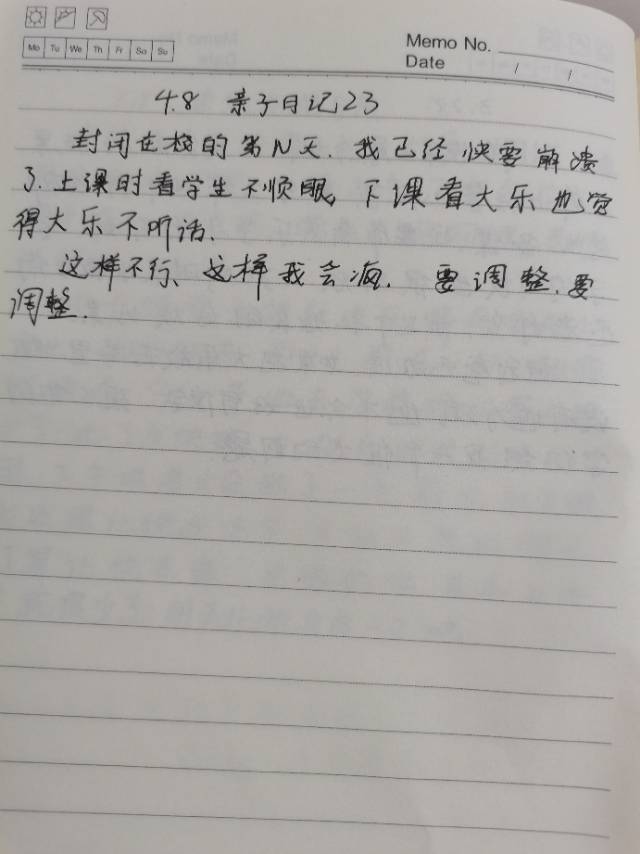 Mo Tu We Th Fr Sa Su
Memo No.
Date / /
4.8 亲子日记23
封闭在校的第N天.我已经快要崩溃
了.上课时看学生不顺眼,下课看大乐也觉
得大乐不听话.
这样不行、这样我会疯.要调整.要
调整.